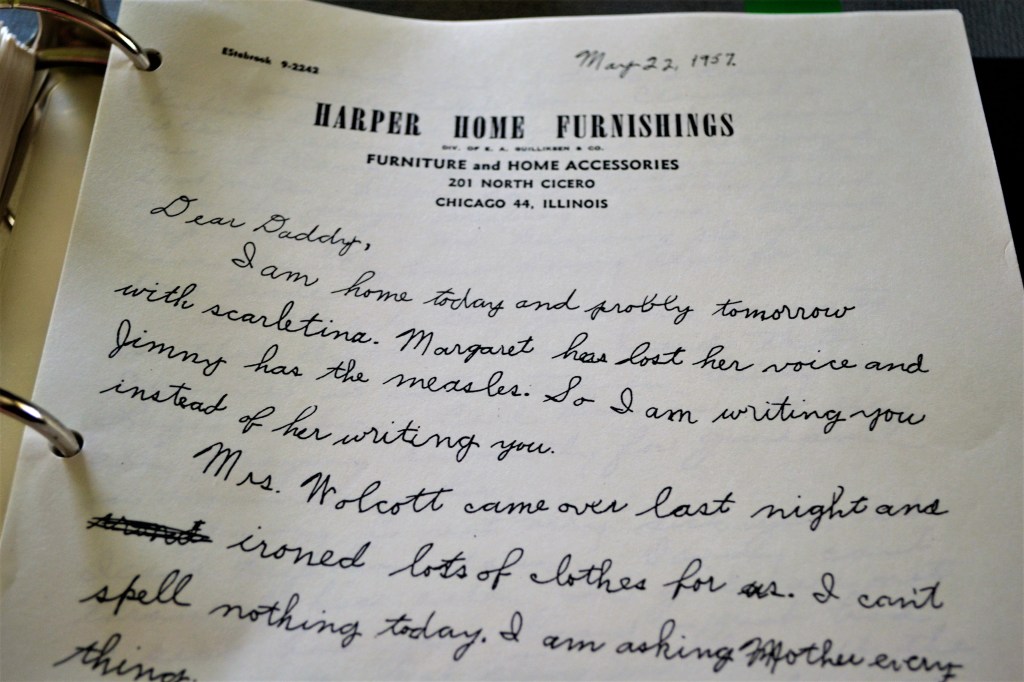 EStebrook 9-2242
May 22, 1957.
HARPER HOME FURNISHINGS
DIV. OF E. A. GULLIKSEN & CO.
FURNITURE and HOME ACCESSORIES
201 NORTH CICERO
CHICAGO 44, ILLINOIS
Dear Daddy,
I am home today and probbly tomorrow
with scarletina. Margaret has lost her voice and
Jimmy has the measles. So I am writing you
instead of her writing you.
Mrs. Wolcott came over last night and
ironed lots of clothes for us. I can't
spell nothing today. I am asking Mother every
thing.